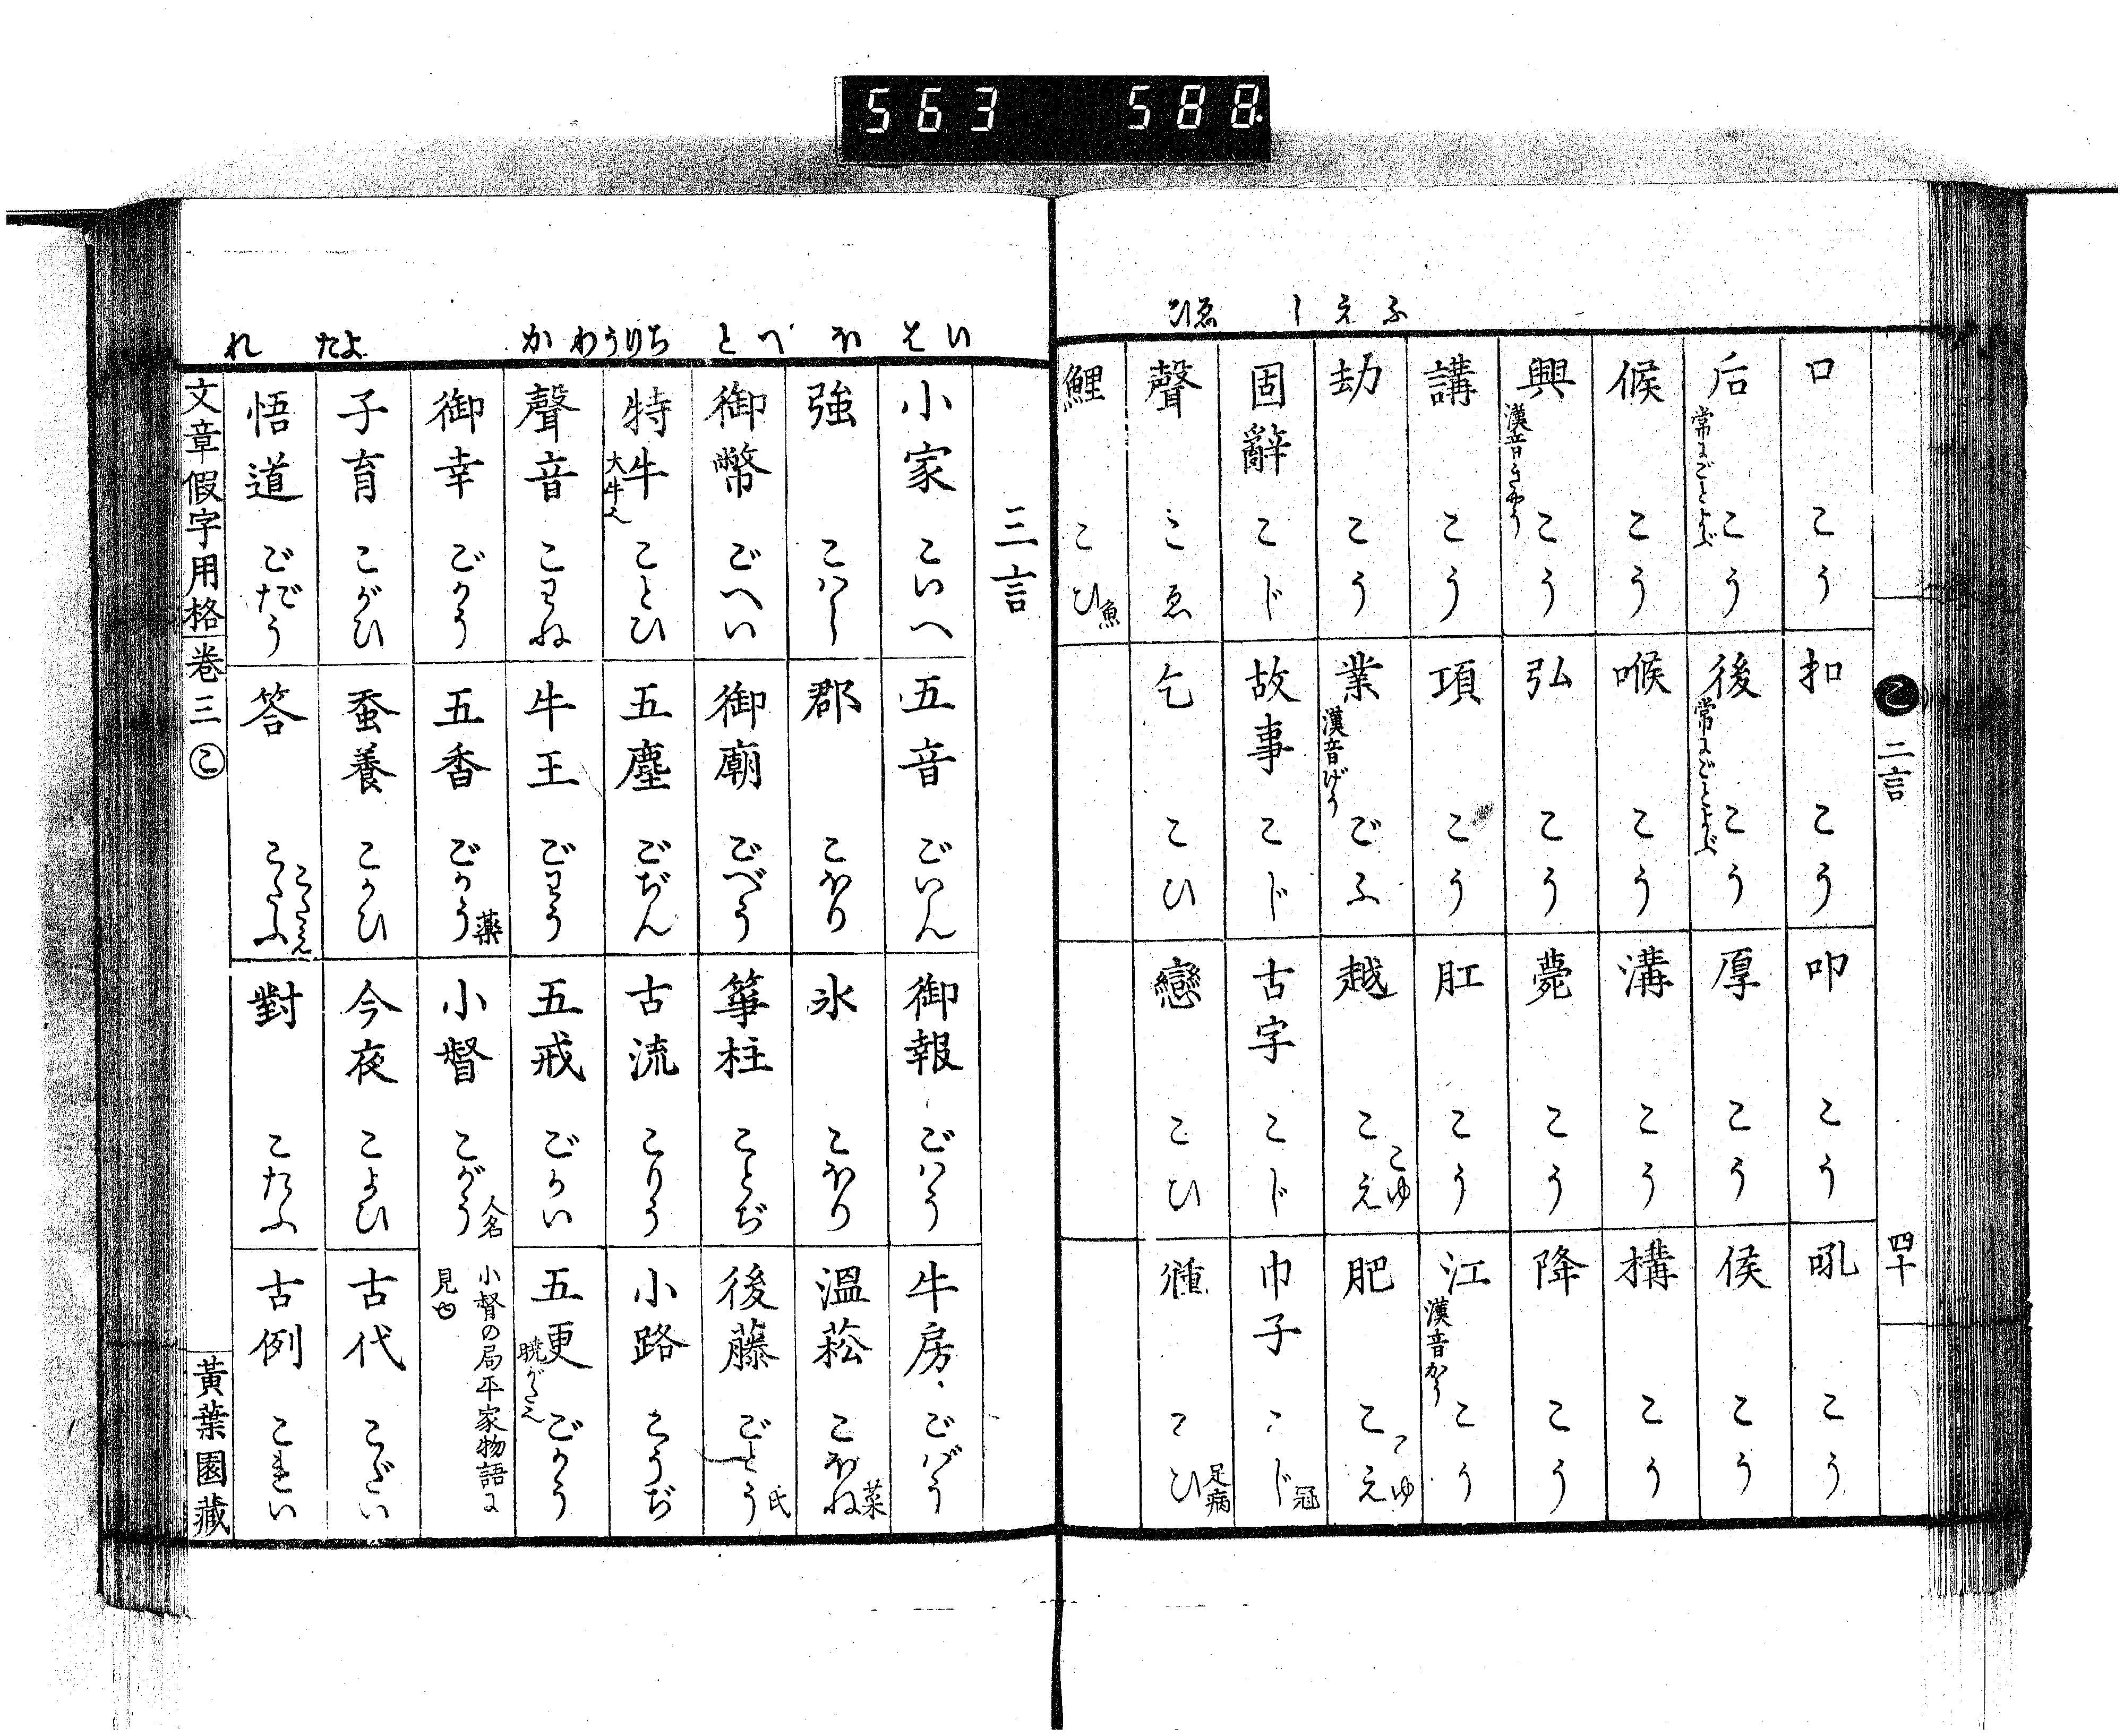 563 588
ふ え し ゑひ
こ 二言 四十
口 こう
扣 こう
叩 こう
吼 こう
后 常にごとよぶ こう
後 常にごとよぶ こう
厚 こう
侯 こう
候 こう
喉 こう
溝 こう
構 こう
興 漢音きやう こう
弘 こう
薨 こう
降 こう
講 こう
項 こう
肛 こう
江 漢音かう こう
劫 こう
業 漢音げう ごふ
越 こえ こゆ
肥 こえ こゆ
固辭 こじ
故事 こじ
古字 こじ
巾子 こじ 冠
聲 こゑ
乞 こひ
戀 こひ
瘇 こひ 足病
鯉 こひ 魚
い は ほ へ と ちりうわ か よた れ
三言
小家 こいへ
五音 ごいん
御報 ごはう
牛房 ごばう
強 こはし
郡 こほり
氷 こほり
溫菘 こほね 菜
御幣 ごへい
御廟 ごべう
箏柱 ことぢ
後藤 ごとう 氏
特牛 大牛也 ことひ
五塵 ごぢん
古流 こりう
小路 こうぢ
聲音 こわね
牛王 ごわう
五戒 ごかい
五更 暁がた也 ごかう
御幸 ごかう
五香 ごかう 薬
小督 こがう 人名
小督の局平家物語に
見ゆ
子育 こがひ
蚕養 こかひ
今夜 こよひ
古代 こだい
悟道 ごだう
答 こたふ こたえ
對 こたふ
古例 これい
文章假字用格 卷三 こ 黃葉園藏